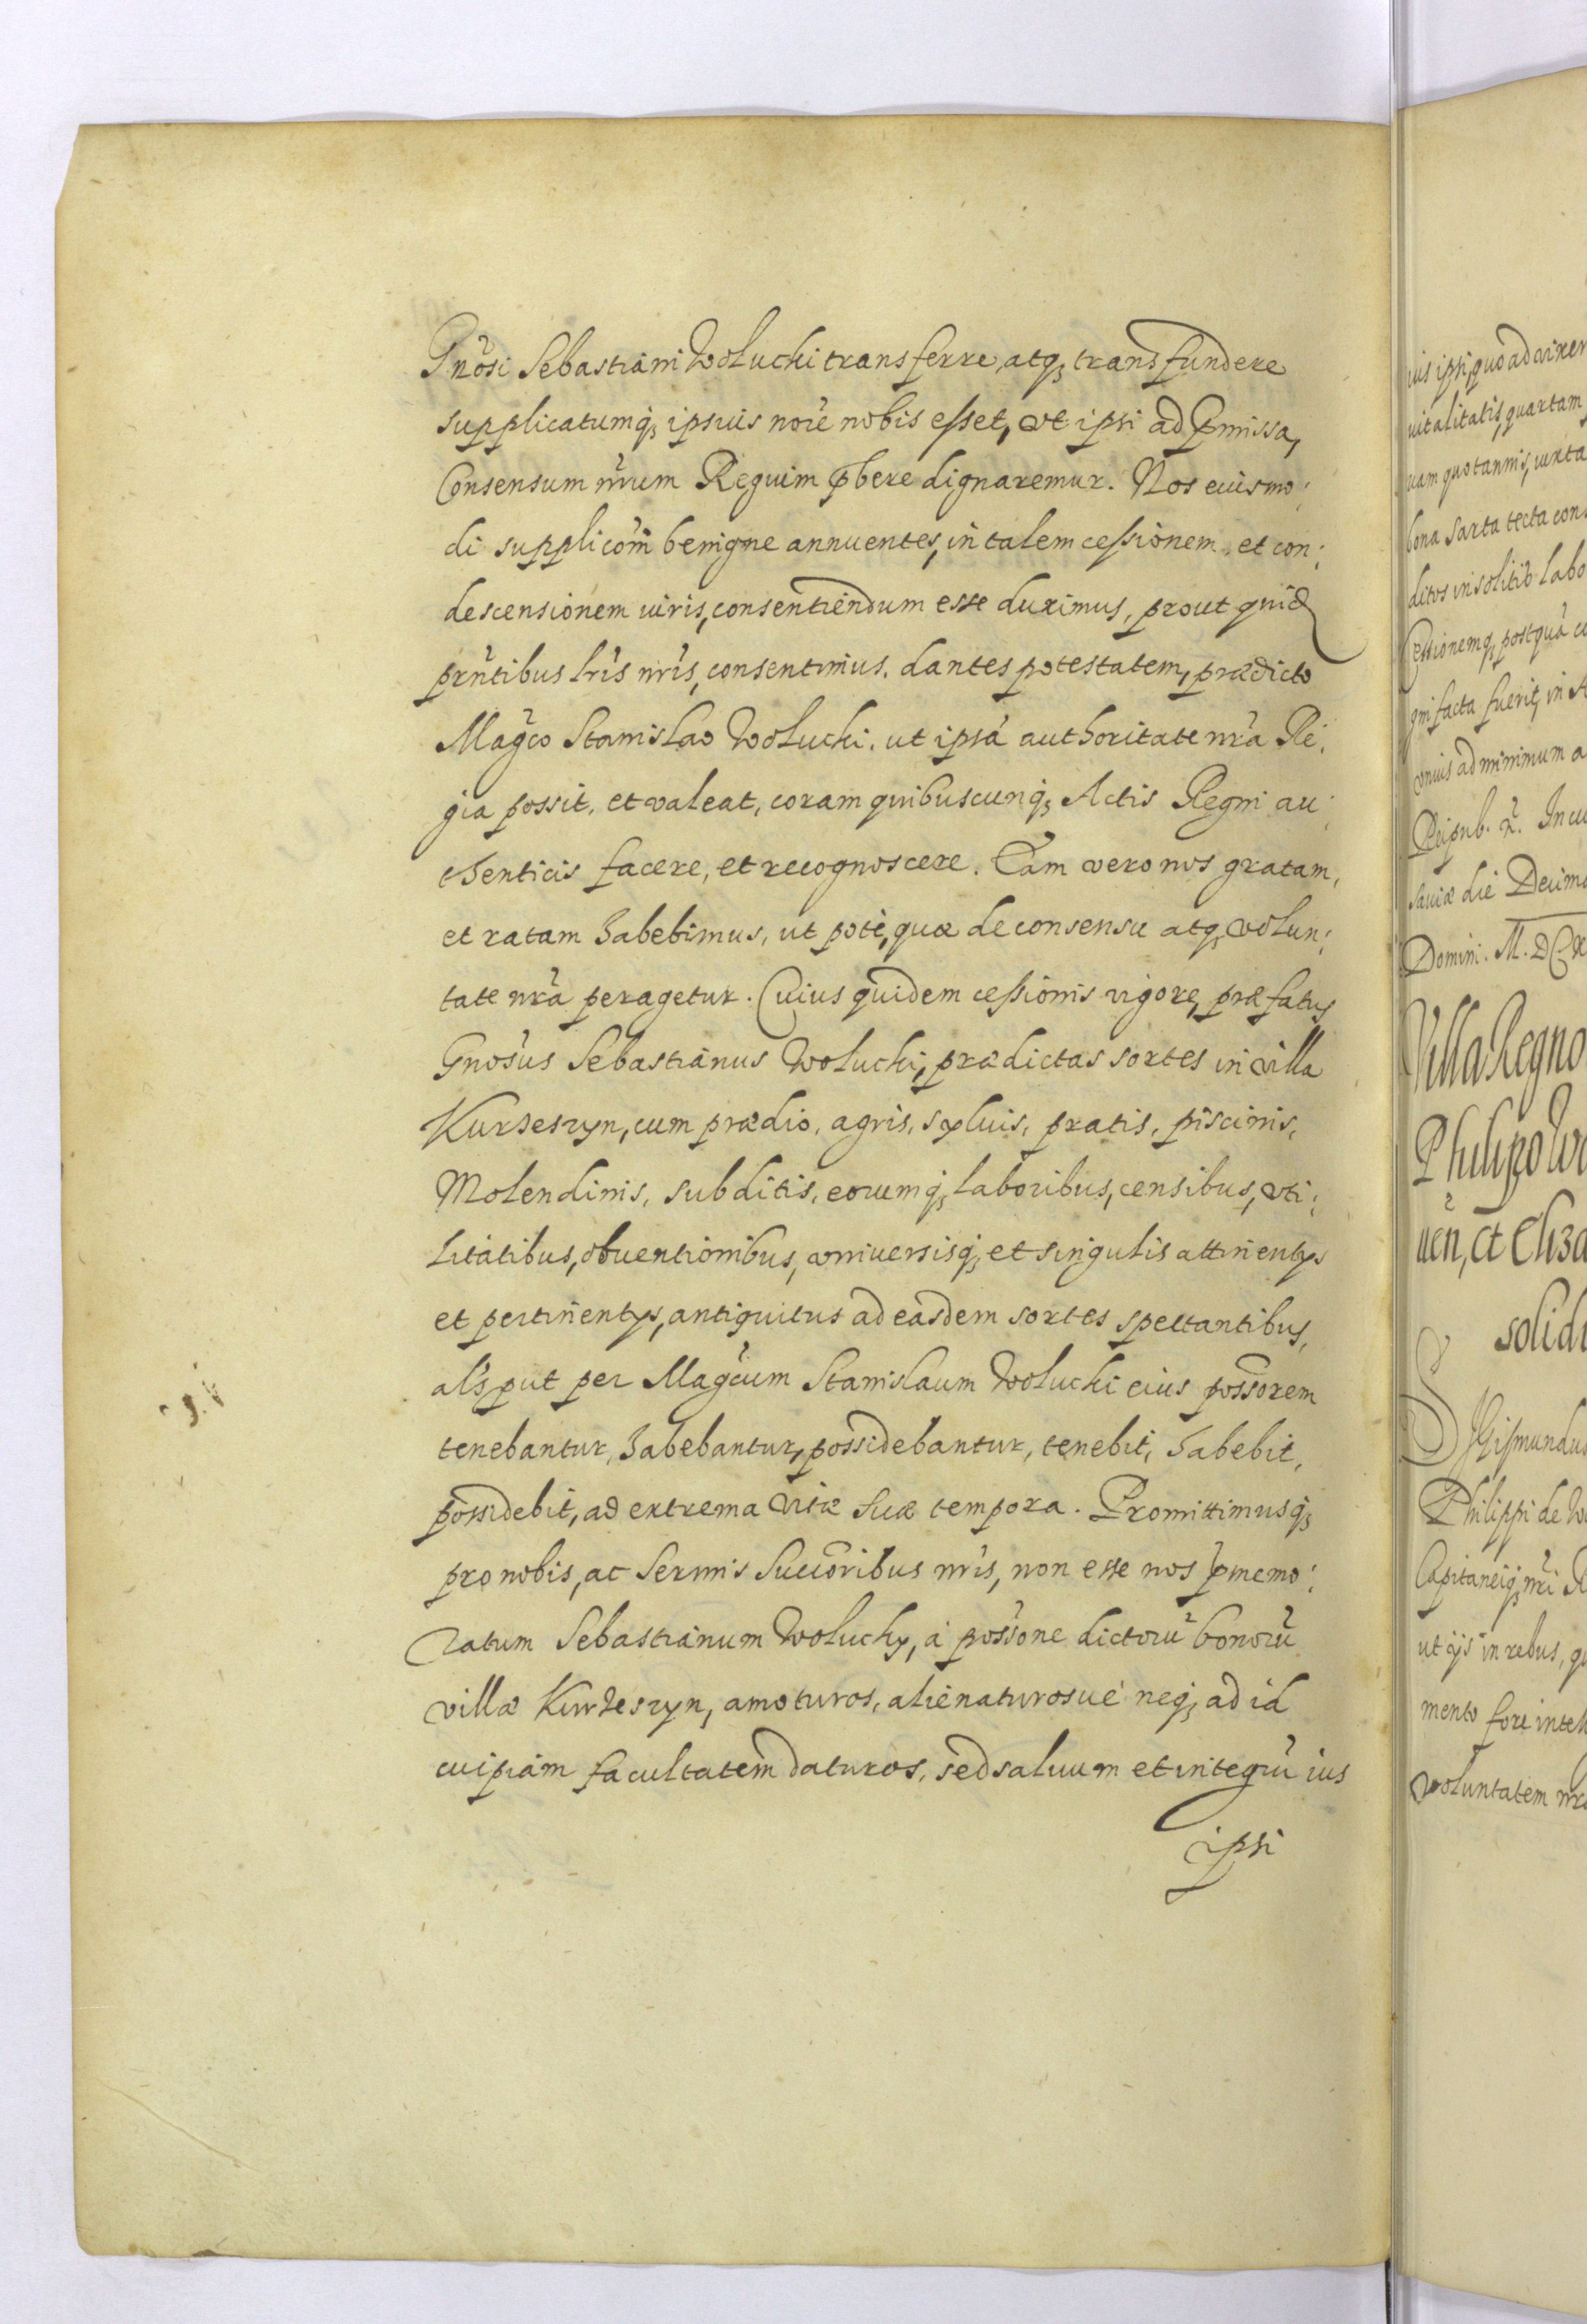 Gnosi Sebastiani Wolucki transferre, atq, transfundere
supplicatumq, ipsius noie nobis esset, vt ipsi ad pmissa,
Consensum nrum Regium pbere dignaremur. Nos euismo:
di supplicom benigne annuentes, in talem cessionem, et con:
descensionem iuris, consentiendum esse duximus, prout quid
prntibus lris nris, consentimus. dantes potestatem, prædicto
Magco Stanislao Wolucki, ut ipsa authoritate nra Re:
gia possit, et valeat, coram quibuscunq, Actis Regni au:
thenticis facere, et recognoscere. Eam vero nos gratam,
et ratam habebimus, ut pote, quæ de consensu atq, volun:
tate nra peragetur. Cuius quidem cessionis vigore, præfatus
Gnosus Sebastianus Wolucki, prædictas sortes in villa
Kurzeszyn, cum prædio, agris, syluis, pratis, piscinis,
Molendinis, subditis, eorumq, laboribus, censibus, vti:
litatibus, obuentionibus, vniuersisq, et singulis attinentys
et pertinentys, antiquitus ad easdem sortes spectantibus,
als put per Magcum Stanislaum Wolucki eius possorem
tenebantur, habebantur, possidebantur, tenebit, habebit,
possidebit, ad extrema vitæ suæ tempora. Promittimusq,
pro nobis, ac Sermis Succoribus nris, non esse nos pmemo:
ratum Sebastianum Wolucky, a possone dictoru bonoru
villæ Kurzeszyn, amoturos, alienaturosue neq, ad id
cuipiam facultatem daturos, sed saluum et integru ius
ipsi
ius ipsi, quo ad vixer
uitalitatis, quartam
uam quotannis, iuxta
bona sarta tecta con
ditos insolitis labo
Cessionemq, postqua co
gni facta fuerit, in A
vnius ad minimum a
Reipub. n. In cu
sauiæ die Decima
Domini. M. DC
Villa Regno
Philipo Wo
uen, et Eliza
solidi
Sigismundus
Philippi de Wo
Capitaneiq, nri R
ut ijs in rebus, qu
mento fore intell
voluntatem nra